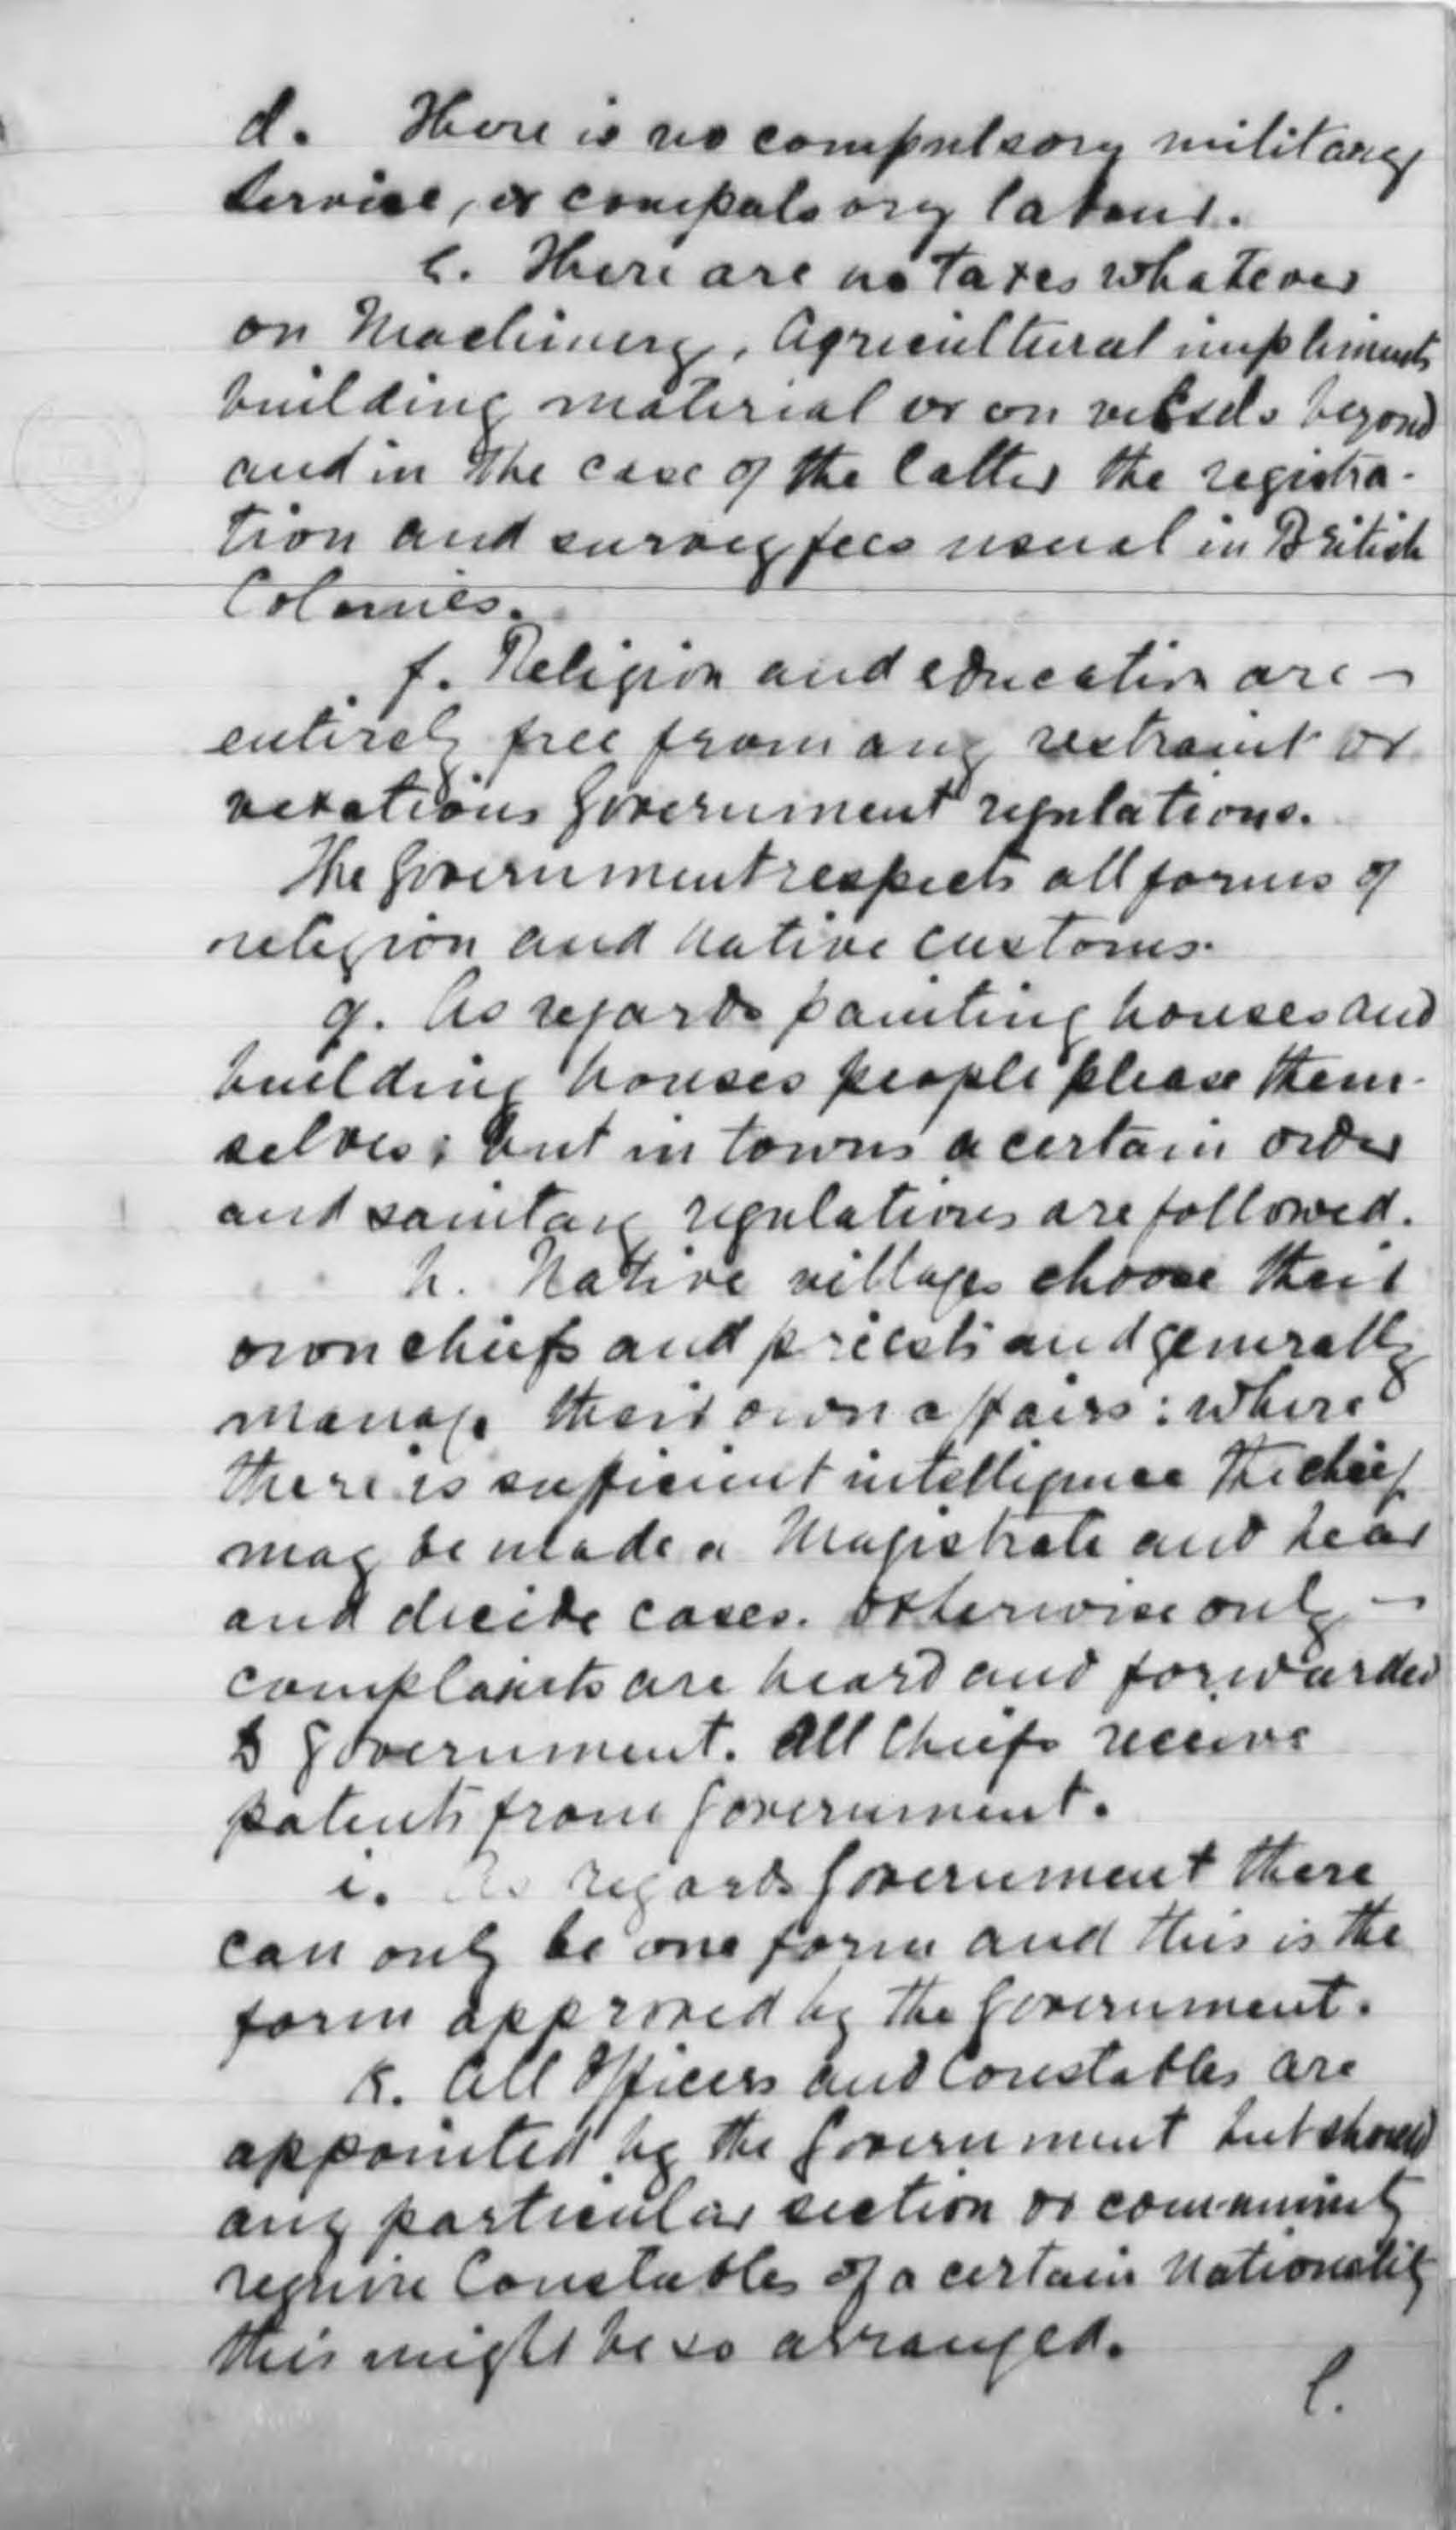 d. There is no compulsory military
service, or compulsory labour.
e. There are no taxes whatever
on Machinery, Agricultural impliments
building material or on vessels beyond
and in the case of the latter the registra-
tion and survey fees usual in British
Colonies.
f. Religion and education are -
entirely free from any restraint or
vexatious Government regulations.
The Government respects all forms of
religion and native customs.
g. As regards painting houses and
building houses people please them-
selves; but in towns a certain order
and sanitary regulations are followed.
h. Native villages choose their
own chiefs and priests and generally
manage their own affairs: where
there is sufficient intelligence the chief
may be made a Magistrate and hear
and decide cases. Otherwise only -
complaints are heard and forwarded
to Government. All Chiefs receive
patents from Government.
i. As regards Government there
can only be one form and this is the
form approved by the Government.
k. All Officers and Constables are
appointed by the Government but should
any particular section or community
require Constables of a certain Nationality
this might be so arranged.
l.